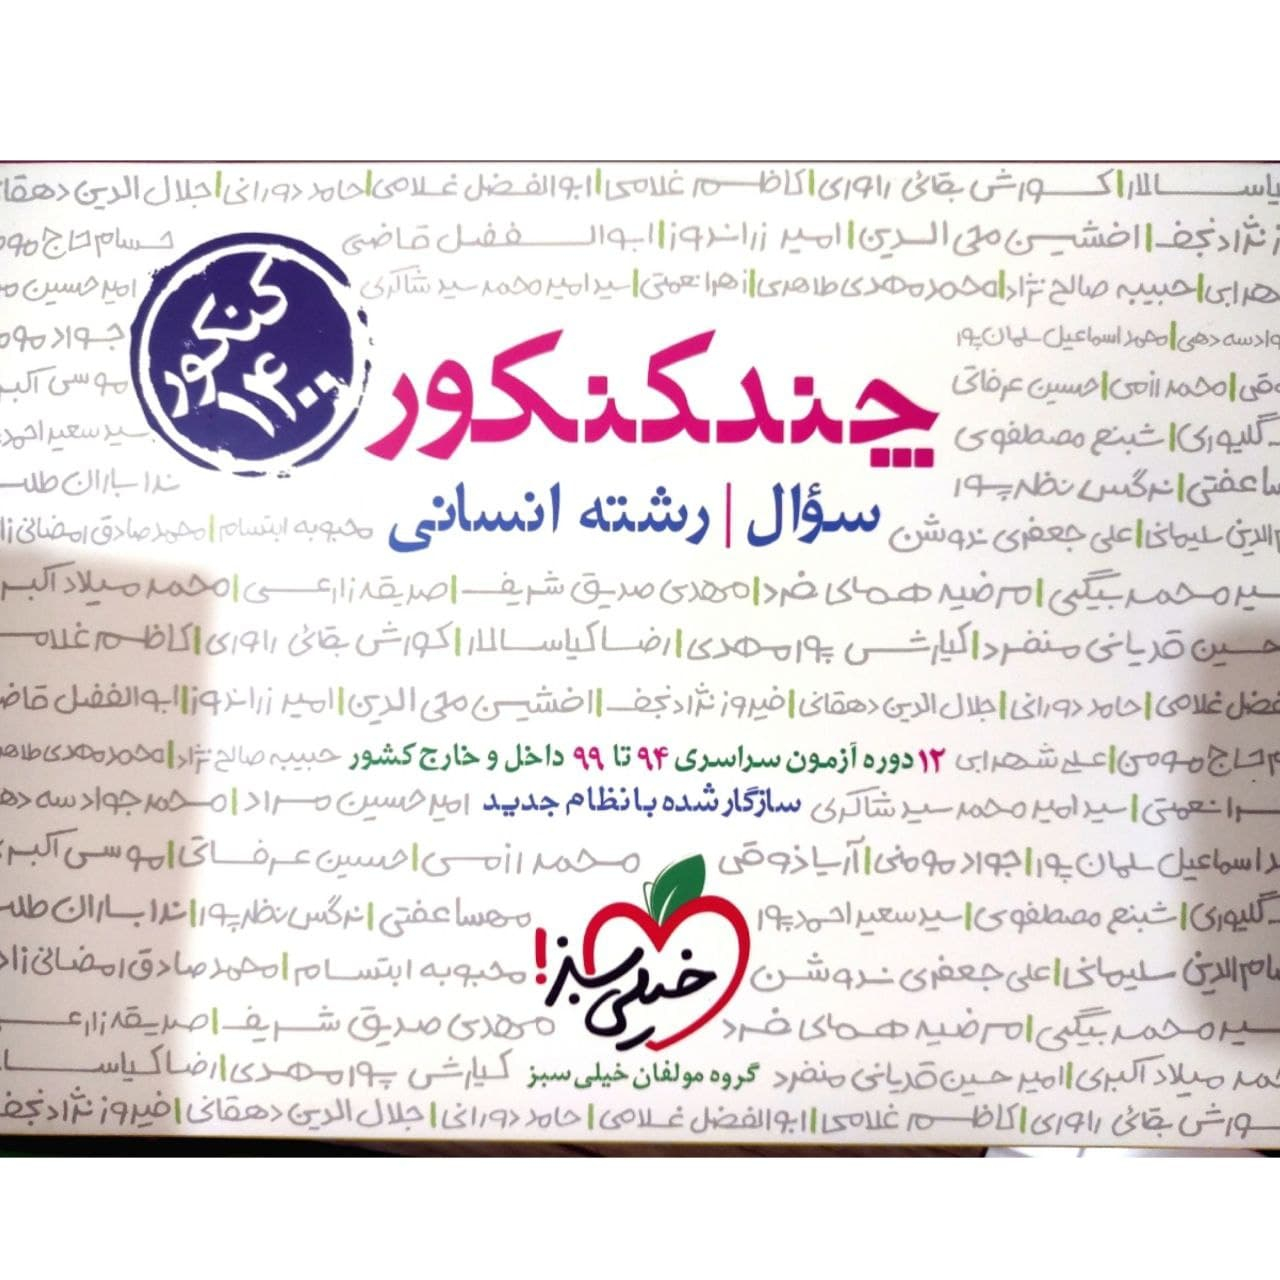 یاسالار|کورش بقائی راوری|کاظم غلامی|ابوالفضل غلامی|حامد دورانی|جلال الدین دهقا
نژاد نجف|افشین محی الدین|امیر زراندوز|ابوالفضل قاضی
حسام حاج مو
هرابی|حبیبه صالح نژاد|محمدمهدی طاهری|زهرا نعمتی|سید امیر محمد سید شاکری
امیر حسین
کنکور
۱۴۰۰
واد سه دهی|محمد اسماعیل سلمان پور
جواد مو
چند کنکور
وقی|محمد رزمی|حسین عرفاتی
موسی اکبر
گلیوری|شبنم مصطفوی
سید سعید احمد
سا عفتی|نرگس نظرپور
ندا باران طلب
سؤال | رشته انسانی
الدین سلیمانی|علی جعفری ندوشن
محبوبه ابتسام|محمد صادق رمضانی زا
محمد بیگی|مرضیه همای فرد|مهدی صدیق شریف|صدیقه زارعی|محمد میلاد اکبر
حسین قدیانی منفرد|کیارش پورمهدی|رضا کیاسالار|کورش بقائی راوری|کاظم غلام
فضل غلامی|حامد دورانی|جلال الدین دهقانی|فیروز نژاد نجف|افشین محی الدین|امیر زراندوز|ابوالفضل قاض
حاج مومن|علی شهرابی
۱۲ دوره آزمون سراسری ۹۴ تا ۹۹ داخل و خارج کشور
حبیبه صالح نژاد|محمدمهدی طاهر
نعمتی|سید امیر محمد سید شاکری
سازگار شده با نظام جدید
امیر حسین مراد|محمد جواد سه ده
اسماعیل سلمان پور|جواد مومنی|آریا ذوقی
محمد رزمی|حسین عرفاتی|موسی اکبری
گلیوری|شبنم مصطفوی|سید سعید احمدپور
مهسا عفتی|نرگس نظرپور|ندا باران طلب
خیلی سبز!
سام الدین سلیمانی|علی جعفری ندوشن
محبوبه ابتسام|محمد صادق رمضانی زاد
محمد بیگی|مرضیه همای فرد
مهدی صدیق شریف|صدیقه زارع
محمد میلاد اکبری|امیر حسین قدیانی منفرد
گروه مولفان خیلی سبز
کیارش پورمهدی|رضا کیاسا
ورش بقائی راوری|کاظم غلامی|ابوالفضل غلامی|حامد دورانی|جلال الدین دهقانی|فیروز نژاد نجف